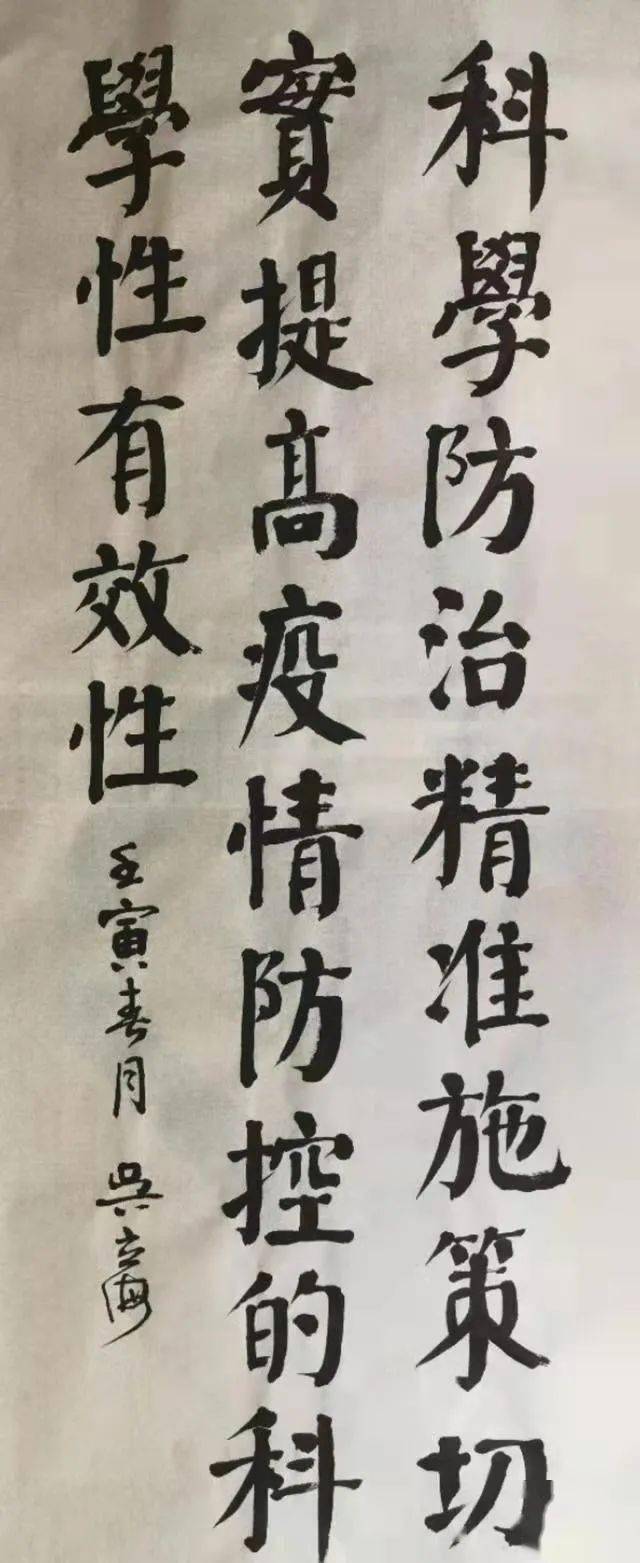 科學防治精准施策切
實提高疫情防控的科
學性有效性
壬寅春月 吳立海